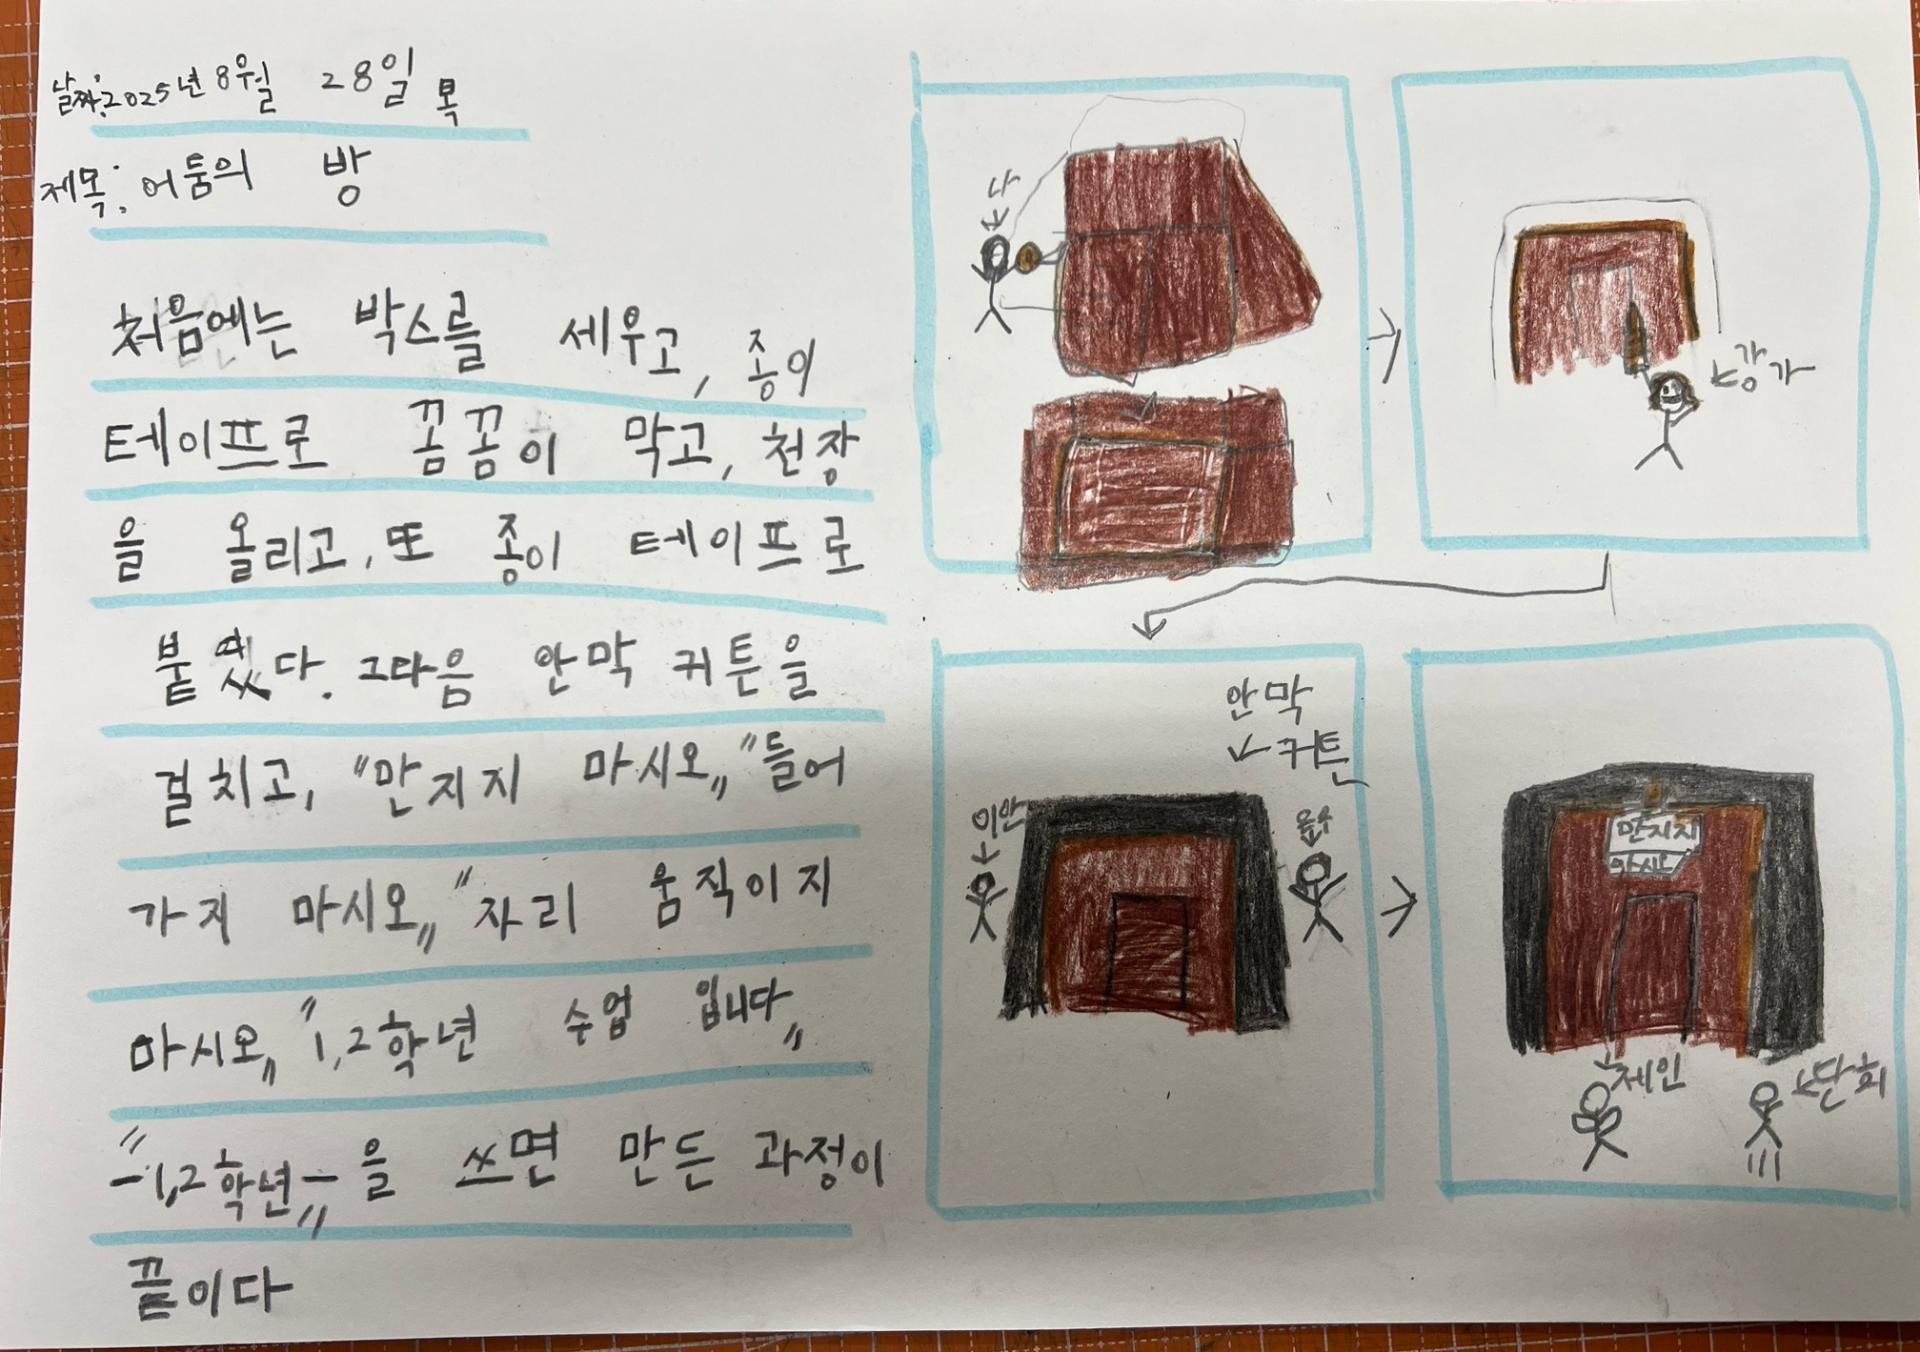 날짜: 2025년 8월 28일 목
제목: 어둠의 방
처음에는 박스를 세우고, 종이
테이프로 꼼꼼이 막고, 천장
을 올리고, 또 종이 테이프로
붙였다. 그다음 안막 커튼을
걸치고, "만지지 마시오" "들어
가지 마시오" "자리 움직이지
마시오" "1,2학년 수업 입니다"
"-1,2학년-"을 쓰면 만든 과정이
끝이다
나
강가
안막
커튼
이안
만지지
마시오
제인
단희